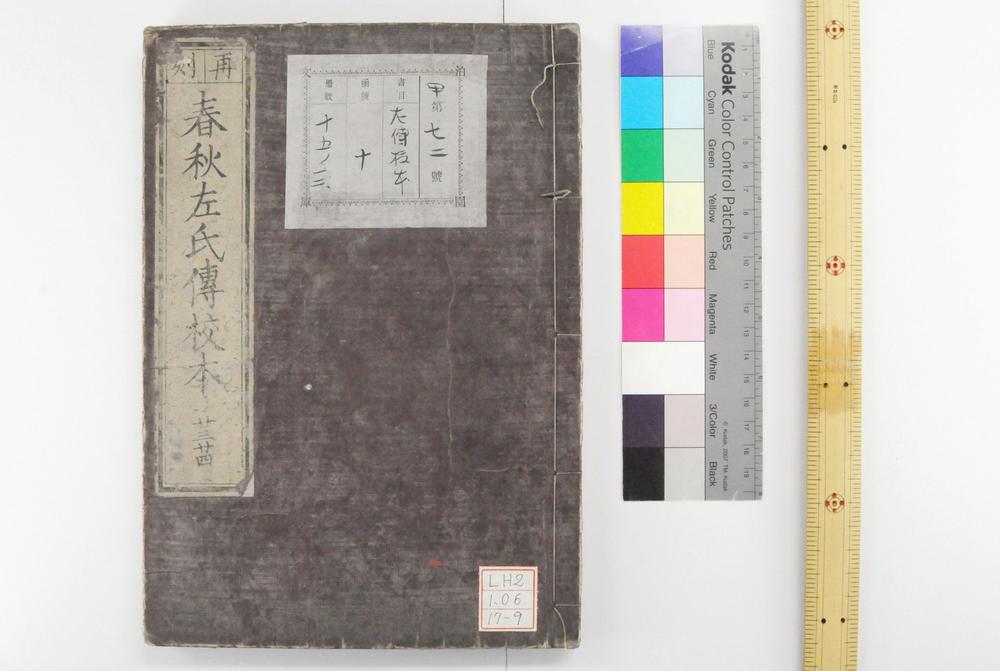 再刻
春秋左氏傳校本
廿三廿四
泊園文庫
甲第七二號
書目
左傳校本
函號
十
冊數
十五ノ三
LH2
1.06
17-9
Kodak Color Control Patches
Blue
Cyan
Green
Yellow
Red
Magenta
White
3/Color
Black
© Kodak, 2007 TM: Kodak